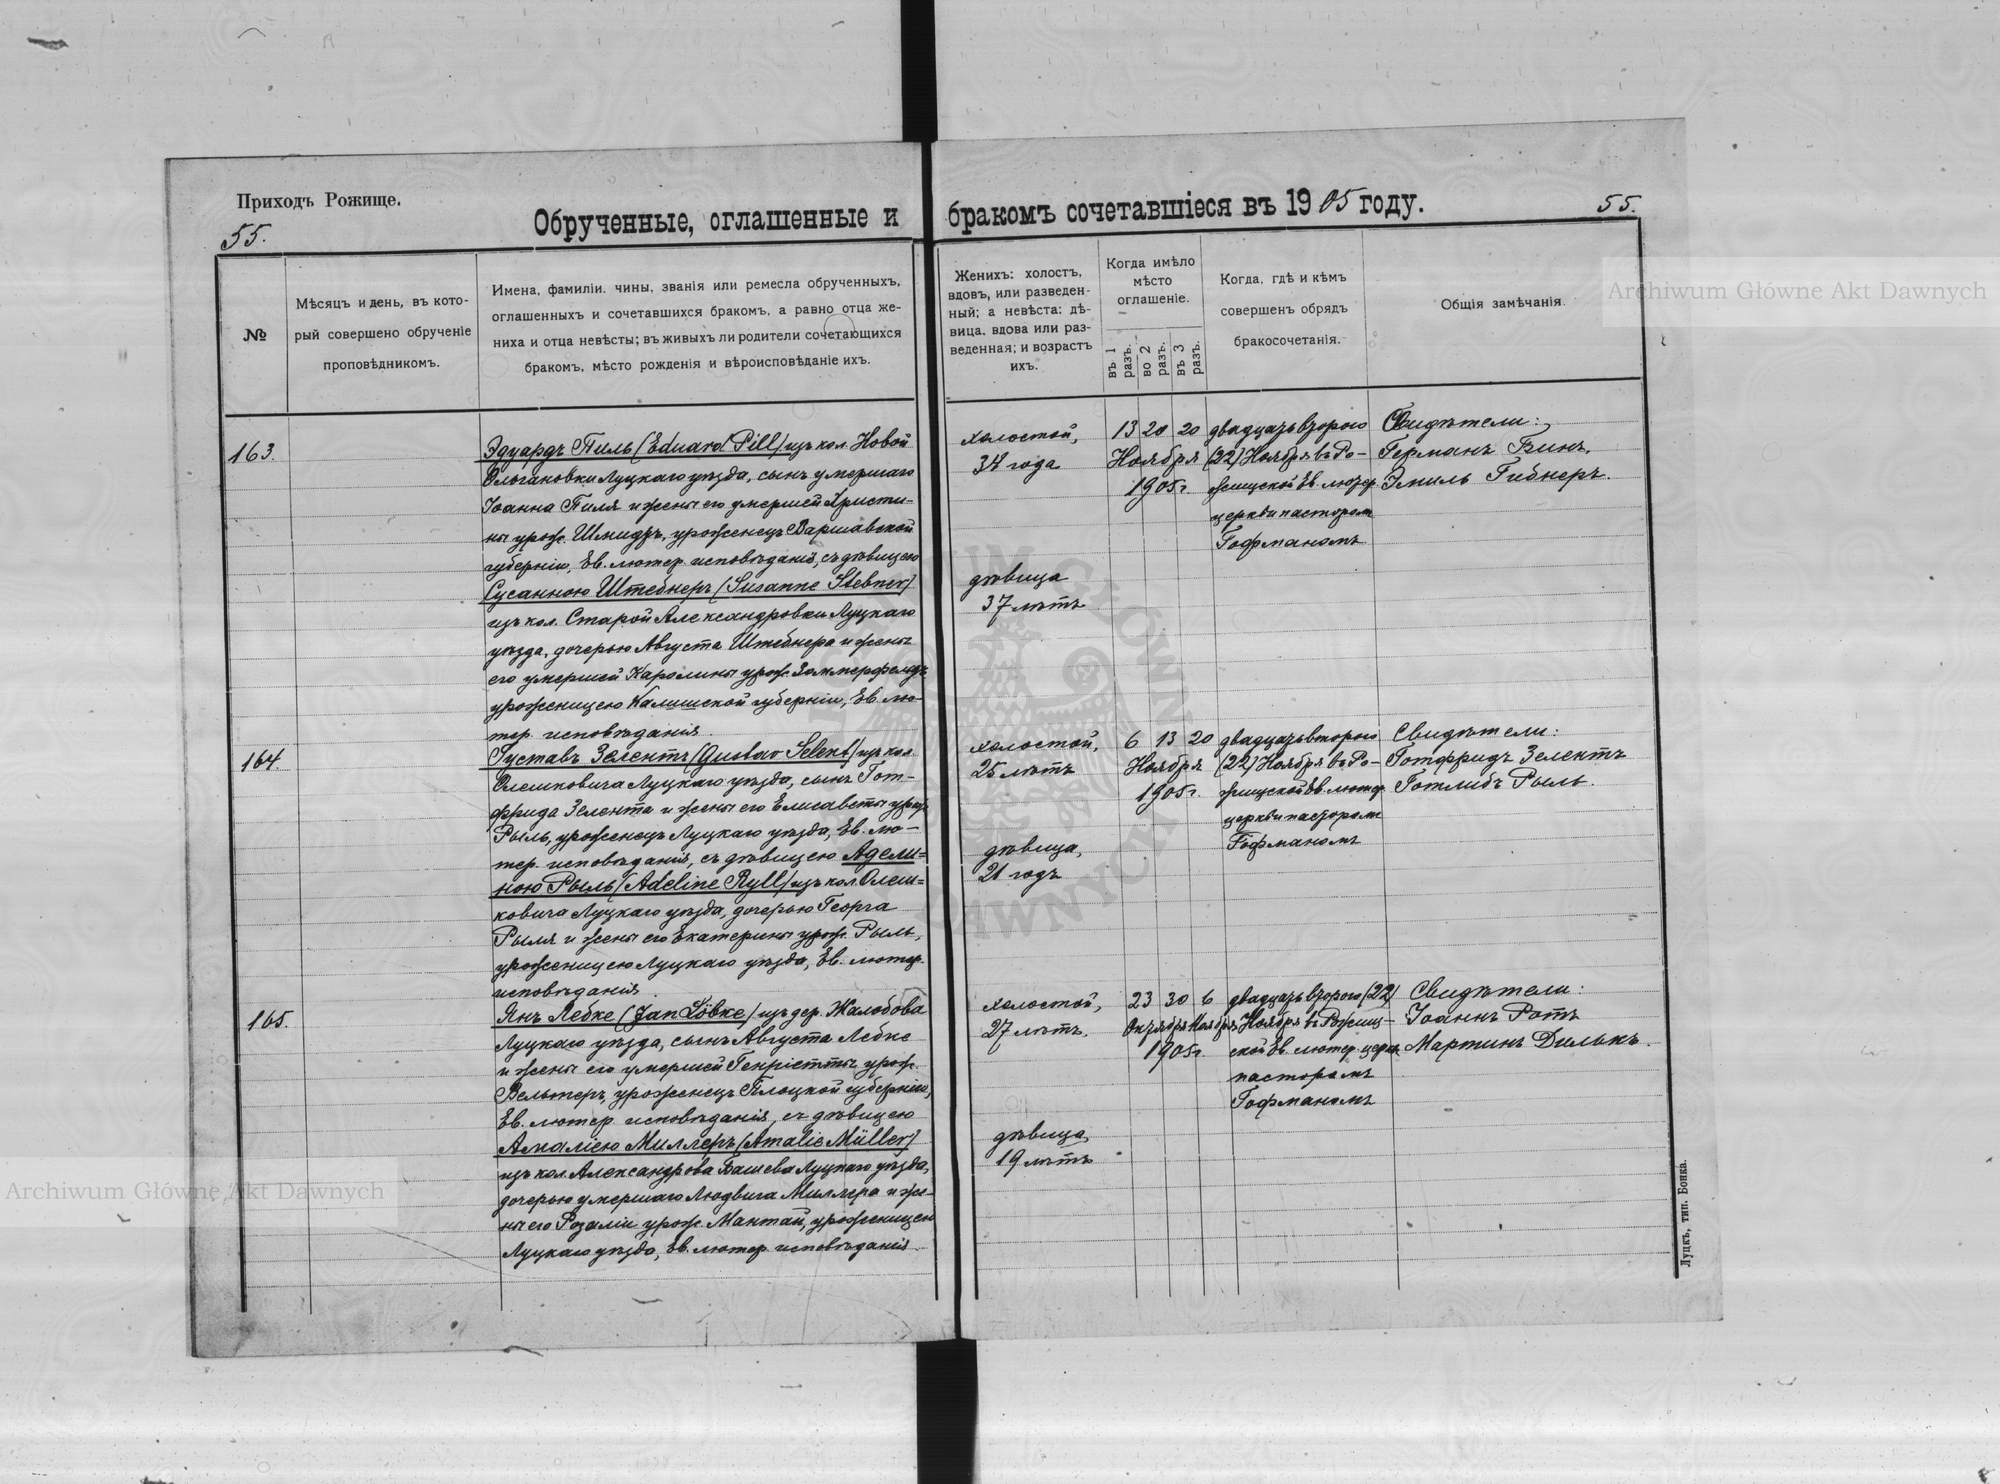 Приходъ Рожище.
55.
Обрученные, оглашенные и бракомъ сочетавшіеся въ 1905 году.
55.
№
Мѣсяцъ и день, въ кото-
рый совершено обрученіе
проповѣдникомъ.
Имена, фамиліи, чины, званія или ремесла обрученныхъ,
оглашенныхъ и сочетавшихся бракомъ, а равно отца же-
ниха и отца невѣсты; въ живыхъ ли родители сочетающихся
бракомъ, мѣсто рожденія и вѣроисповѣданіе ихъ.
Женихъ: холостъ,
вдовъ, или разведен-
ный; а невѣста: дѣ-
вица, вдова или раз-
веденная; и возрастъ
ихъ.
Когда имѣло
мѣсто
оглашеніе.
въ 1 разъ.
во 2 разъ.
въ 3 разъ.
Когда, гдѣ и кѣмъ
совершенъ обрядъ
бракосочетанія.
Общія замѣчанія.
163.
Эдуардъ Пиль (Eduard Pill) изъ кол. Новой
Ольгановки Луцкаго уѣзда, сынъ умершаго
Іоанна Пиля и жены его умершей Христи-
ны урож. Шмидтъ, уроженецъ Варшавской
губерніи, Ев. лютер. исповѣданія, съ дѣвицею
Сусанною Штебнеръ (Susanne Stebner)
изъ кол. Старой Александровки Луцкаго
уѣзда, дочерью Августа Штебнера и жены
его умершей Каролины урож. Зоммерфельдъ
уроженицею Калишской губерніи, Ев. лю-
тер. исповѣданія.
холостой,
34 года
дѣвица
37 лѣтъ
13 20 20
Ноября
1905 г.
двадцать второго
(22) Ноября въ Ро-
жищской Ев. лютер.
церкви пасторомъ
Гофманомъ
Свидѣтели:
Германъ Бинъ,
Эмиль Гибнеръ.
164.
Густавъ Зелентъ (Gustav Selent) изъ кол.
Олешковича Луцкаго уѣзда, сынъ Гот-
фрида Зелента и жены его Елисаветы урож.
Рыль, уроженецъ Луцкаго уѣзда, Ев. лю-
тер. исповѣданія, съ дѣвицею Адели-
ною Рыль (Adeline Ryll) изъ кол. Олеш-
ковича Луцкаго уѣзда, дочерью Георга
Рыля и жены его Екатерины урож. Рыль,
уроженицею Луцкаго уѣзда, Ев. лютер.
исповѣданія.
холостой,
25 лѣтъ
дѣвица,
21 годъ
6 13 20
Ноября
1905 г.
двадцать второго
(22) Ноября въ Ро-
жищской Ев. лютер.
церкви пасторомъ
Гофманомъ
Свидѣтели:
Готфридъ Зелентъ
Готлибъ Рыль.
165.
Янъ Лебке (Jan Löbke) изъ дер. Жалобова
Луцкаго уѣзда, сынъ Августа Лебке
и жены его умершей Генріетты урож.
Вельтеръ, уроженецъ Плоцкой губерніи,
Ев. лютер. исповѣданія, съ дѣвицею
Амаліею Миллеръ (Amalie Müller)
изъ кол. Александрова Башева Луцкаго уѣзда,
дочерью умершаго Людвига Миллера и же-
ны его Розаліи урож. Мантай, уроженицею
Луцкаго уѣзда, Ев. лютер. исповѣданія.
холостой,
27 лѣтъ.
дѣвица,
19 лѣтъ
23 30 6
Октября Ноября
1905 г.
двадцать второго (22)
Ноября въ Рожищ-
ской Ев. лютер. церкв.
пасторомъ
Гофманомъ
Свидѣтели:
Іоаннъ Ротъ
Мартинъ Дилькъ.
Луцкъ, тип. Бонка.
Archiwum Główne Akt Dawnych
Archiwum Główne Akt Dawnych